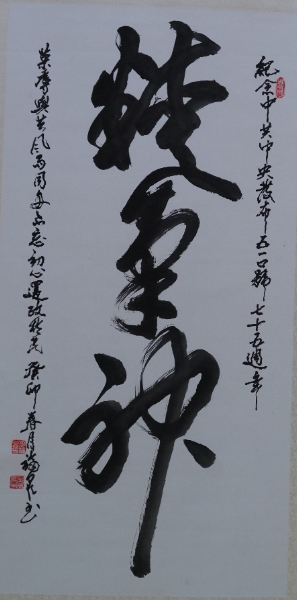 紀念中共中央發布五一口號七十五週年
精氣神
榮辱與共風雨同舟不忘初心還政於民癸卯春月